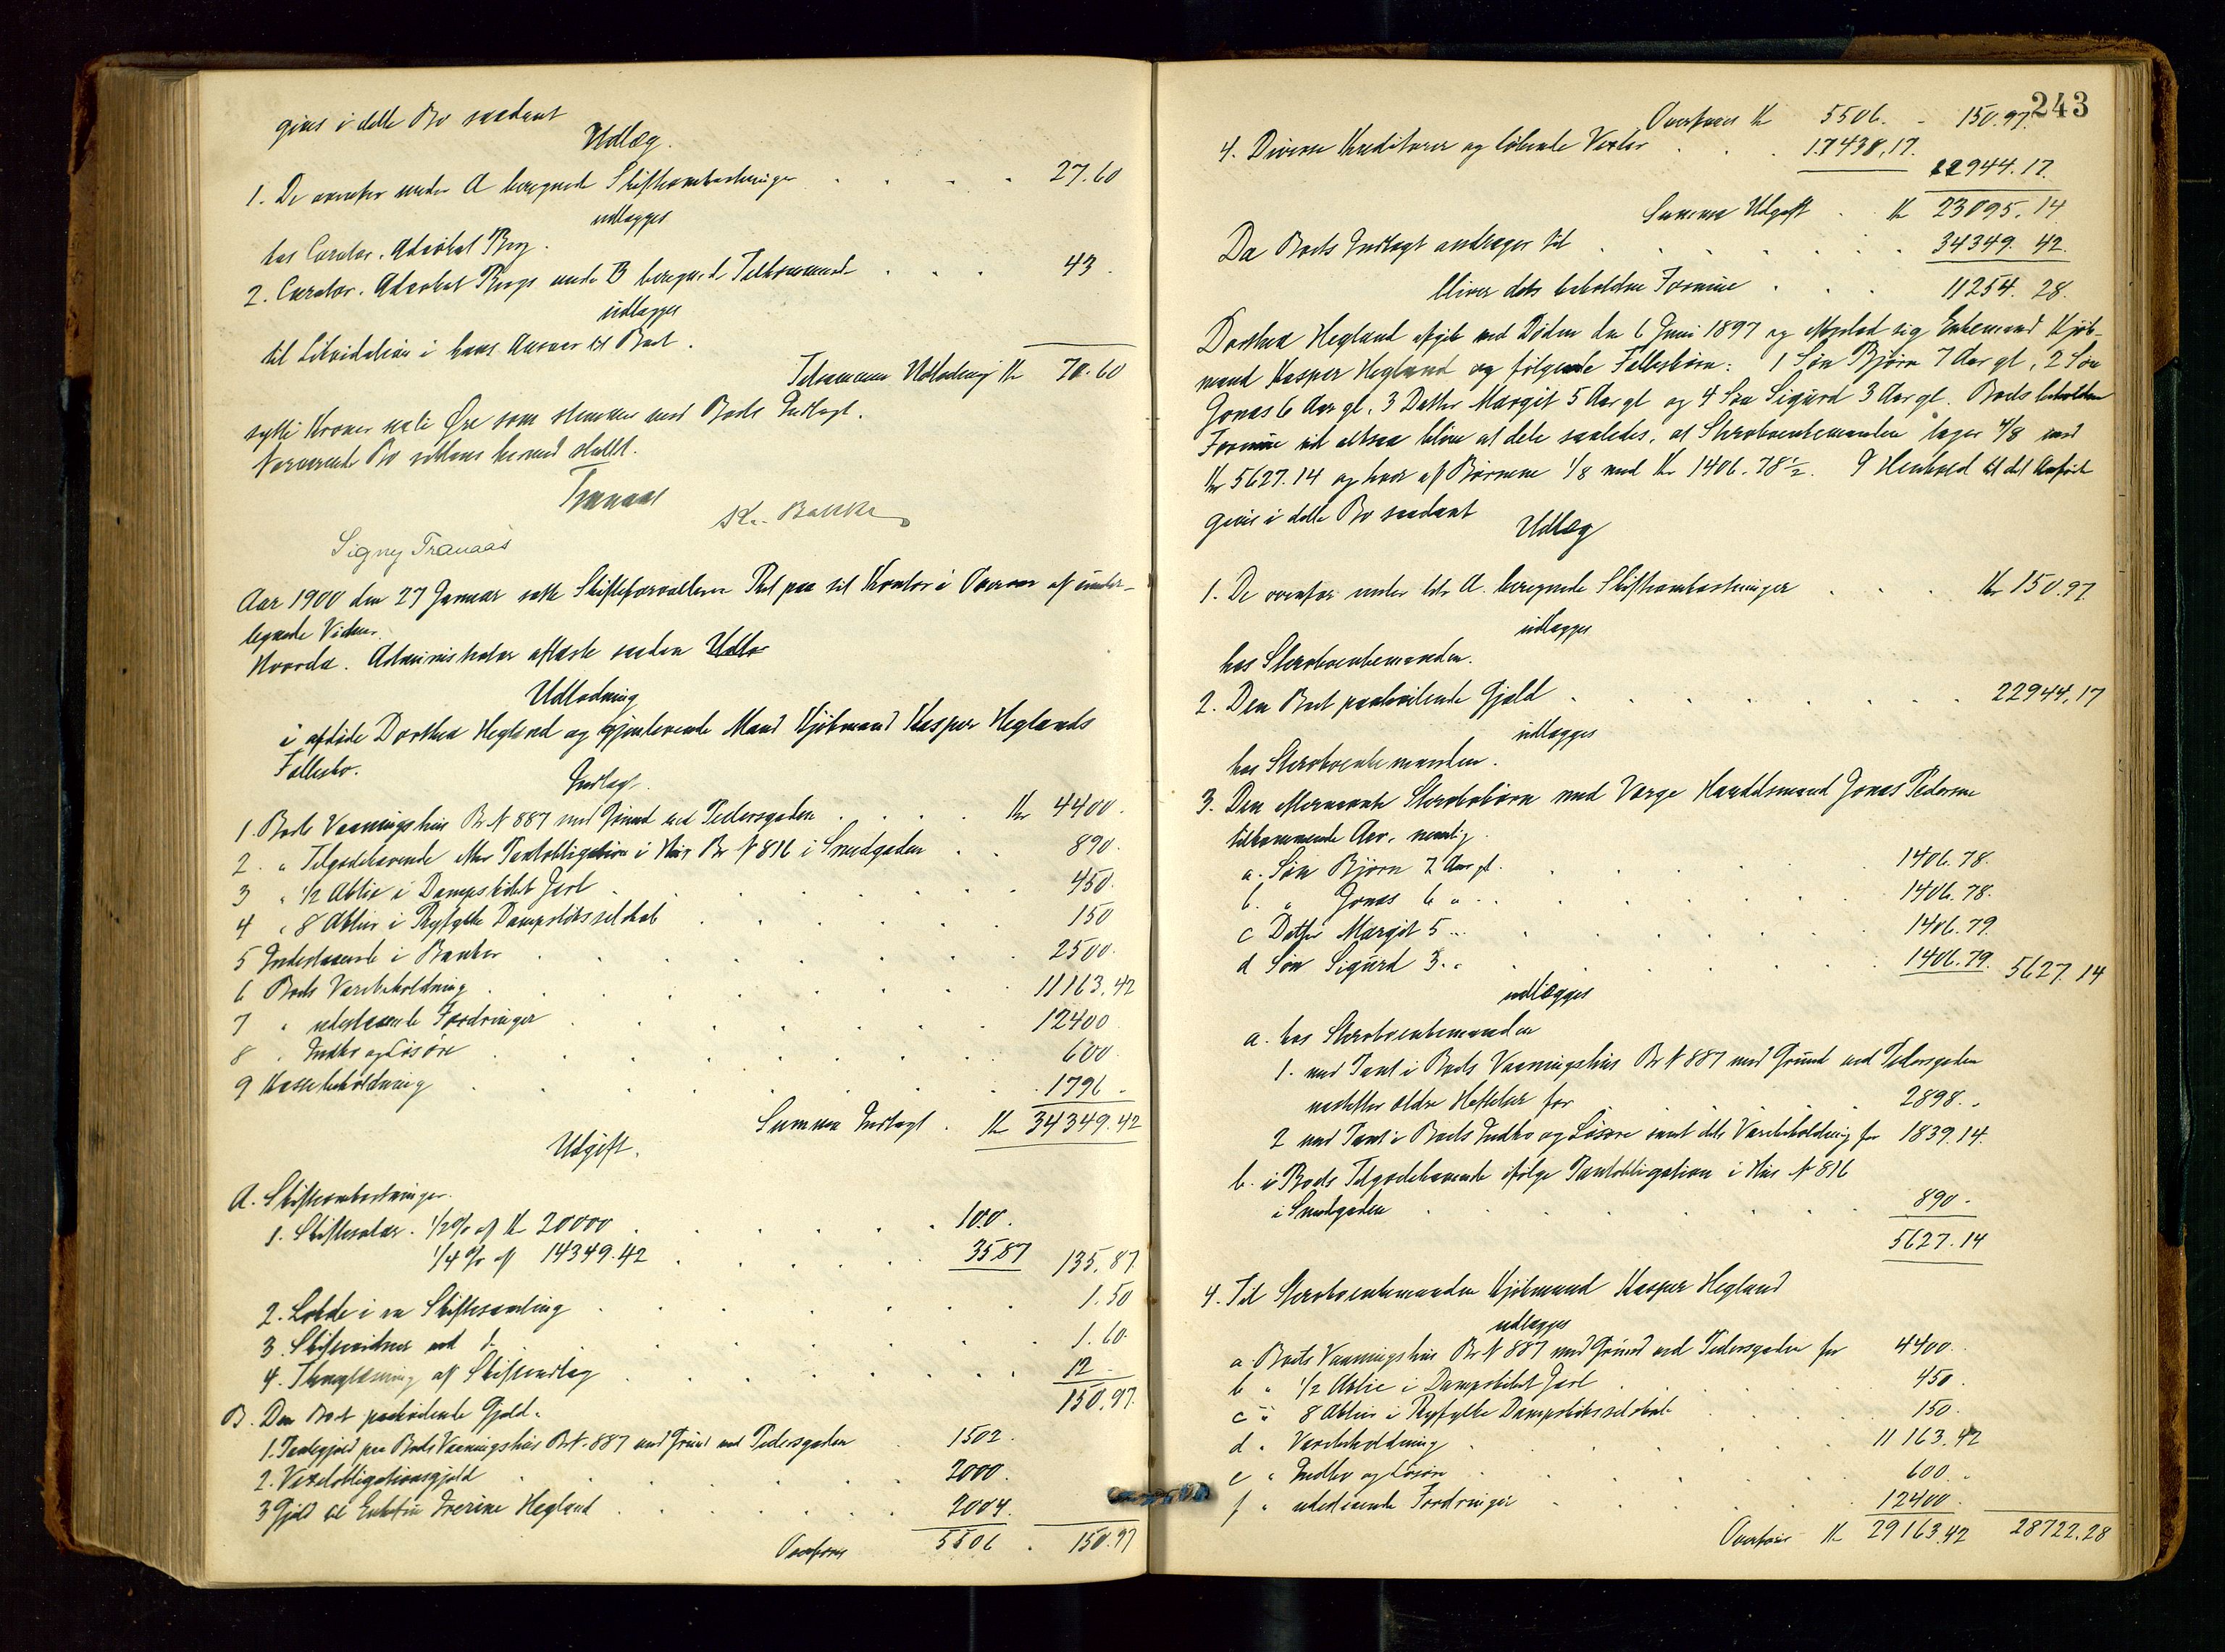 gives i dette Bo saadant
Udlæg.
1. De ovenfor under A beregnede Skifteomkostninger . . . . 27.60
udlægges
hos Curator, Advokat Berg.
2. Curator, Advokat Bergs under B beregnede Tilkommende . . . 43.
udlægges
til Likvidation i hans Ansvar til Boet.
Tilsammen Udlodning Kr 70.60
sytti Kroner seksti Øre som stemmer med Boets Indtægt.
Nærværende Bo sluttes hermed skiftet.
Tranaas
Kr. Bakke
Signy Tranaas
Aar 1900 den 27 Januar satte Skifteforvalteren Ret paa sit Kontor i Overvær af under-
tegnede Vidner.
Hvorda. Administrator afleste saaden Udlo
Udlodning
i afdøde Dorthea Hegland og gjenlevende Mand Kjøbmand Kasper Heglands
Fællesbo.
Indtægt.
1. Boets Vaaningshus Br N 887 med Grund ved Pedersgaden . . . . Kr 4400.
2. " Tilgodehavende efter Pantobligation i Hus Br N 816 i Smedgaden . . 890.
3 " 1/2 Aktie i Dampskibet Jarl . . . . . 450.
4 " 8 Aktier i Ryfylke Dampskibsselskab . . . . 150
5 Indestaaende i Banker . . . . . 2500.
6 Boets Varebeholdning . . . . . 11163.42
7 " udestaaende Fordringer . . . . . 12400
8 " Indbo og Løsøre . . . . . 600.
9 Kassebeholdning . . . . . 1796 -
Summa Indtægt . Kr 34349.42
Udgift.
A. Skifteomkostninger.
1. Skiftesalær. 1/2 % af Kr 20000 . . . . . 100.
1/4 % af 14349.42 . . . . . 35.87 135.87
2. Lokale i en Skiftesamling . . . . . 1.50
3. Skiftevidner ved d. . . . . . 1.60.
4. Thinglæsning af Skifteudlæg . . . . . 12 -
150.97.
B. Den Boet paahvilende Gjæld.
1. Pantegjæld paa Boets Vaaningshus Br N. 887 med Grund ved Pedersgaden . 1502.
2. Vexelobligationsgjæld . . . . . 2000.
3 Gjæld til Enkefru Severine Hegland . . . . . 2004.
Overføres 5506 . 150.97
243
Overføres Kr 5506. - 150.97.
4. Diverse Kreditorer og løbende Vexler . . . 17438,17.
22944.17.
Summa Udgift . Kr 23095.14
Da Boets Indtægt andrager til . . . . . 34349.42.
bliver dets beholdne Formue . . . 11254.28.
Dorthea Hegland afgik ved Døden den 6 Juni 1897 og efterlod sig Enkemand Kjøb-
mand Kasper Hegland og følgende Fællesbørn: 1 Søn Bjørn 7 Aar gl, 2 Søn
Jonas 6 Aar gl, 3 Datter Margit 5 Aar gl og 4 Søn Sigurd 3 Aar gl. Boets beholdne
Formue vil altsaa blive at dele saaledes, at Stervboenkemanden tager 4/8 med
Kr 5627.14 og hver af Børnene 1/8 med Kr 1406.78 1/2. I Henhold til det Anførte
gives i dette Bo saadant
Udlæg
1. De ovenfor under litr A. beregnede Skifteomkostninger . . . Kr 150.97
udlægges
hos Stervboenkemanden.
2. Den Boet paahvilende Gjæld . . . . . 22944,17
udlægges
hos Stervboenkemanden.
3. Den efternævnte Stervbobørn med Værge Handelsmand Jonas Pedersen
tilkommende Arv, nemlig.
a. Søn Bjørn 7 Aar gl. . . . . 1406.78.
b. " Jonas 6 " . . . . . 1406.78.
c Datter Margit 5 " . . . . . 1406.79.
d Søn Sigurd 3. " . . . . . 1406.79. 5627.14
udlægges
a. hos Stervboenkemanden
1. med Pant i Boets Vaaningshus Br N 887 med Grund ved Pedersgaden
næstefter ældre Heftelser for . . . 2898. "
2 med Pant i Boets Indbo og Løsøre samt dets Varebeholdning for 1839.14.
b. i Boets Tilgodehavende ifølge Pantobligation i Hus N 816
i Smedgaden . . . . . 890 -
5627.14
4. Til Stervboenkemanden Kjøbmand Kasper Hegland
udlægges
a. Boets Vaaningshus Br N 887 med Grund ved Pedersgaden for 4400.
b " 1/2 Aktie i Dampskibet Jarl . . . . 450.
c " 8 Aktier i Ryfylke Dampskibsselskab . . . 150.
d " Varebeholdning . . . . . 11163.42
e " Indbo og Løsøre . . . . . 600. "
f " udestaaende Fordringer . . . . . 12400.
Overføres Kr 29163.42 28722.28